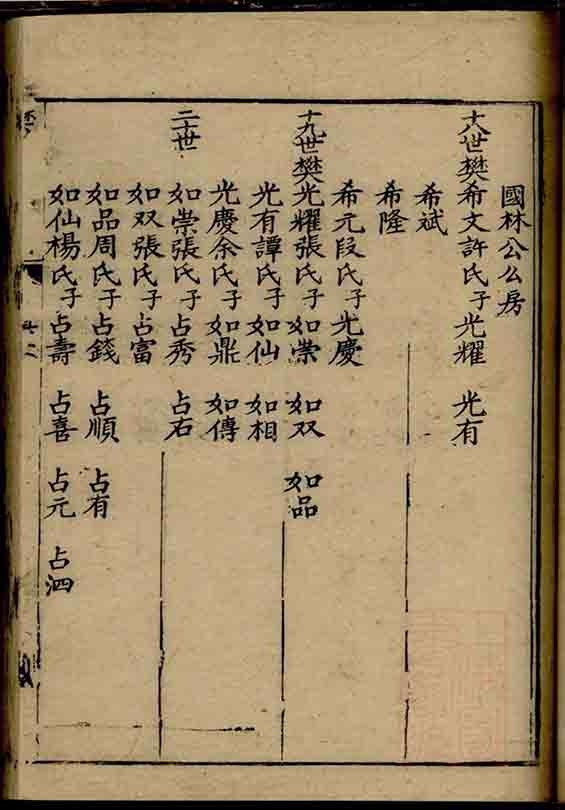 國林公公房
十八世樊希文許氏子光耀 光有
希斌
希隆
希元段氏子光慶
十九世樊光耀張氏子如崇 如双 如品
光有譚氏子如仙 如相
光慶余氏子如鼎 如傳
二十世 如崇張氏子占秀 占右
如双張氏子占富
如品周氏子占錢 占順 占有
如仙楊氏子占壽 占喜 占元 占泗